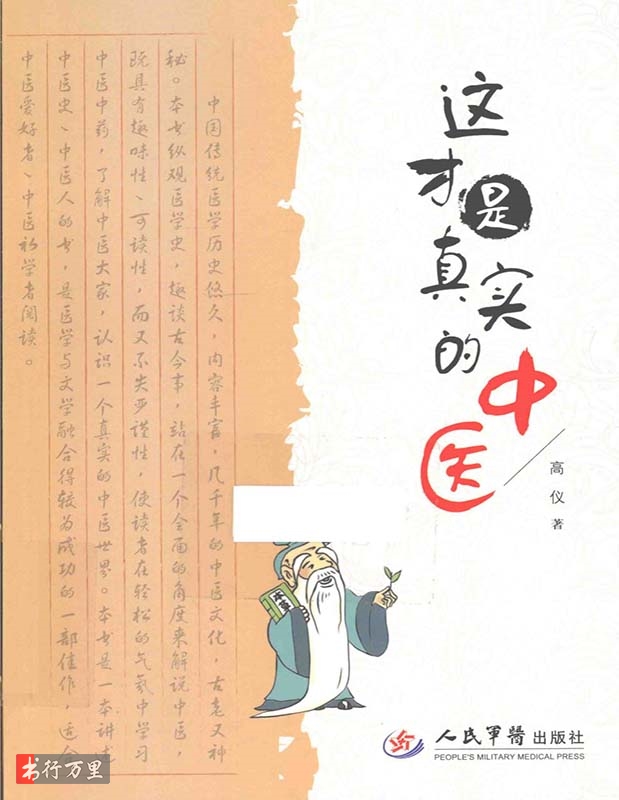 这才是真实的中医
高仪 著
中国传统医学历史悠久，内容丰富，几千年的中医文化，古老又神
秘。本书纵观医学史，趣谈古今事，站在一个全面的角度来解说中医，
既具有趣味性、可读性，而又不失严谨性，使读者在轻松的气氛中学习
中医中药，了解中医大家，认识一个真实的中医世界。本书是一本讲述
中医史、中医人的书，是医学与文学融合得较为成功的一部佳作，适合
中医爱好者、中医初学者阅读。
本草
人民军醫出版社
PEOPLE'S MILITARY MEDICAL PRESS
书行万里